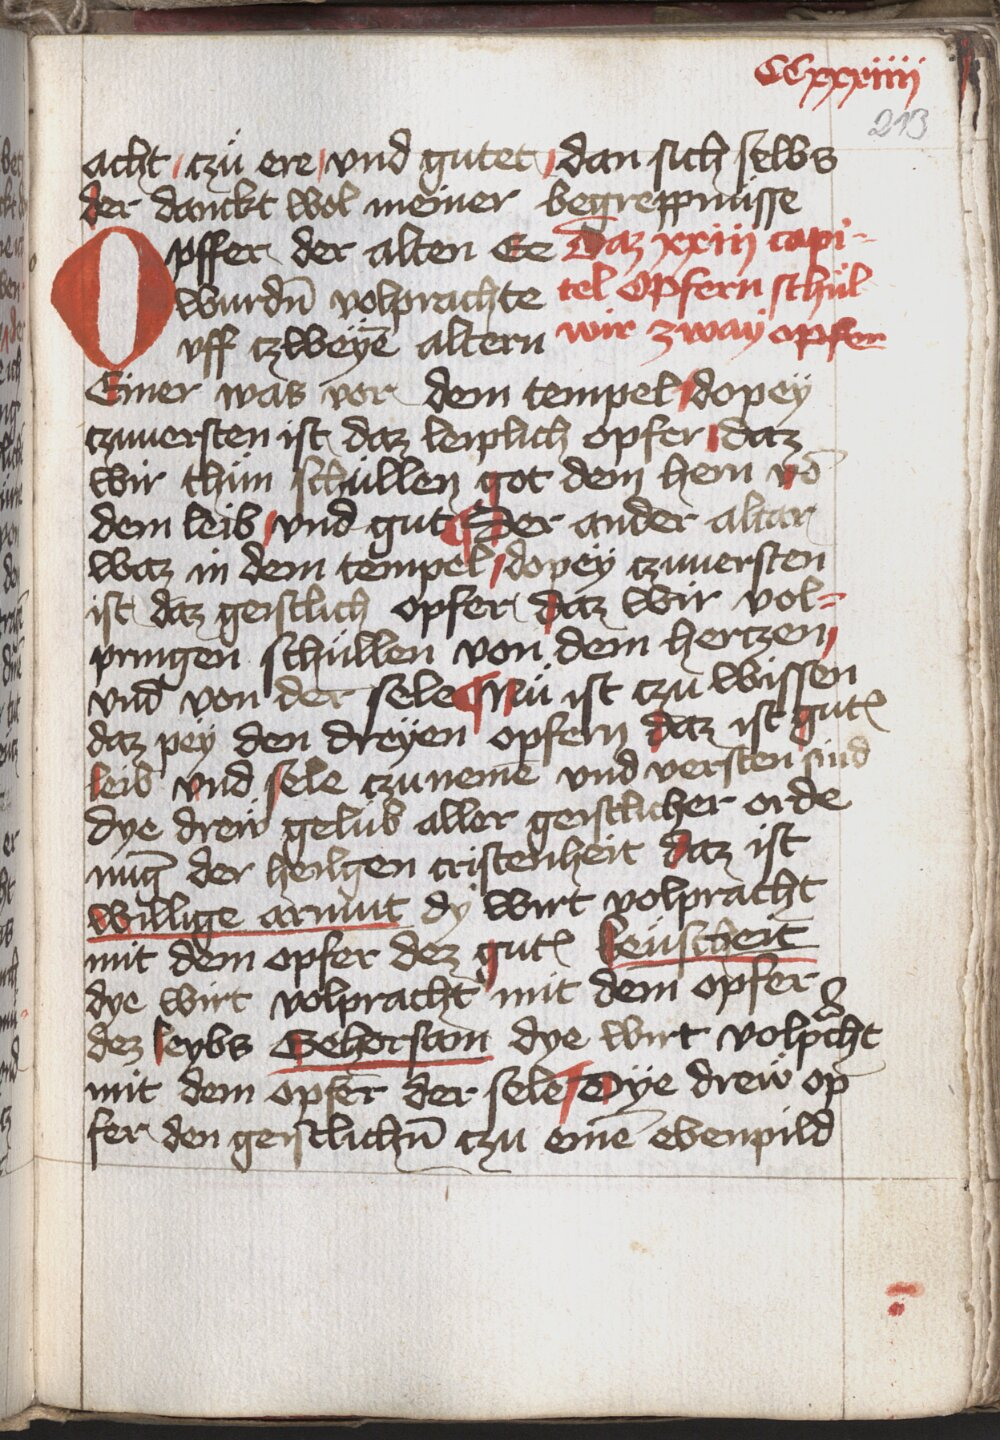 CCxxxiiii
213
acht czü ere vnd gutet dan sich selbs
der danckt wol meiner begreppnüsse
Opffer der alten Ee Daz xxiiij capi-
wurdn̄ volprachte tel Opfern schül
vff czweyē altern wir zway opfer
Einer was vor dem tempel dopey
czuuersten ist daz leiplich opfer daz
wir thün schüllen got dem hern vō
dem leib vnd gut Der ander altar
waz in dem tempel dopey czuuersten
ist daz geistlich opfer daz wir vol-
pringen schüllen von dem hertzen
vnd von der sele Nü ist czu wissen
daz pey den dreyen opfern daz ist gutꝭ
leib vnd sele czunemē vnd versten sind
dye dreẅ gelüb aller geistlicher orde
nūg der heilgen cristenheit daz ist
willige armut dy wirt volpracht
mit dem opfer dez gutꝭ keüscheit
dye wirt volpracht mit dem opfer
dez leybs Gehorsam dye wirt volpͣcht
mit dem opfer der sele Dye dreẅ op
fer den geistlichn̄ czu einē ebenpild